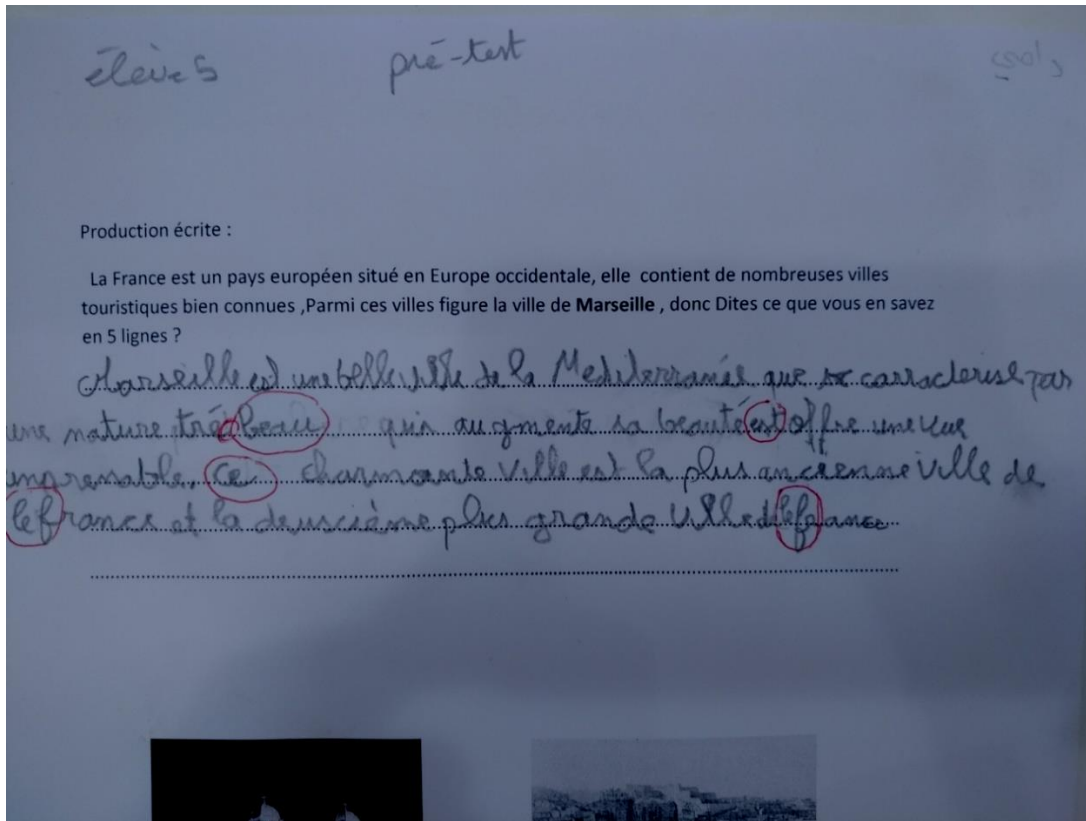 élève 5 pré-test رامي
Production écrite :
La France est un pays européen situé en Europe occidentale, elle contient de nombreuses villes
touristiques bien connues ,Parmi ces villes figure la ville de Marseille , donc Dites ce que vous en savez
en 5 lignes ?
Marseille est une belle ville de la Mediterranée que se carracterise par
une nature trés beau qui augmente sa beauté est offre une vue
imprenable, ce charmante ville est la plus ancienne ville de
le france et la deuscième plus grande ville de le france